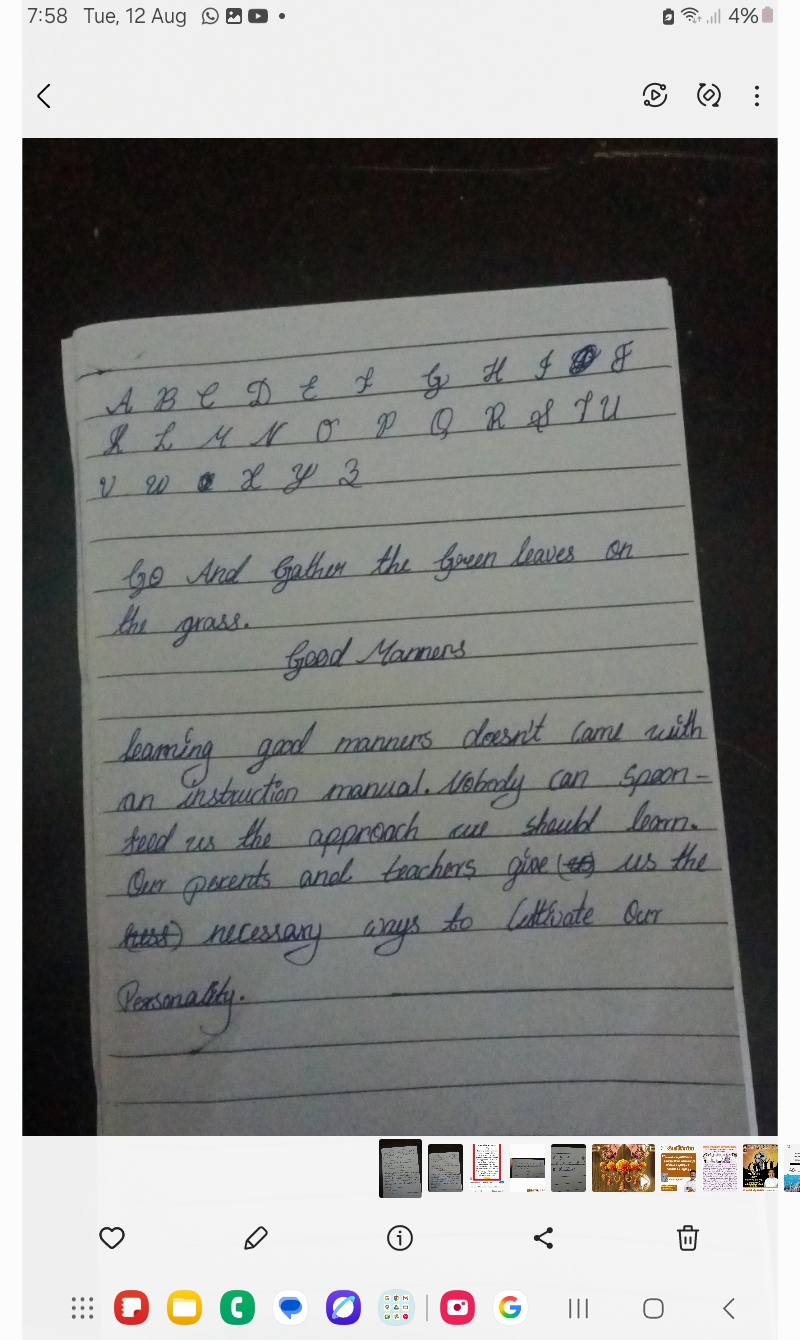 7:58 Tue, 12 Aug 4%
A B C D E F G H I J
K L M N O P Q R S T U
V W X Y Z
Go And Gather the Green leaves on
the grass.
Good Manners
learning good manners doesn't came with
an instruction manual. Nobody can spoon-
feed us the approach we should learn.
Our perents and teachers give (to) us the
necessary ways to Cultivate Our
Personality.